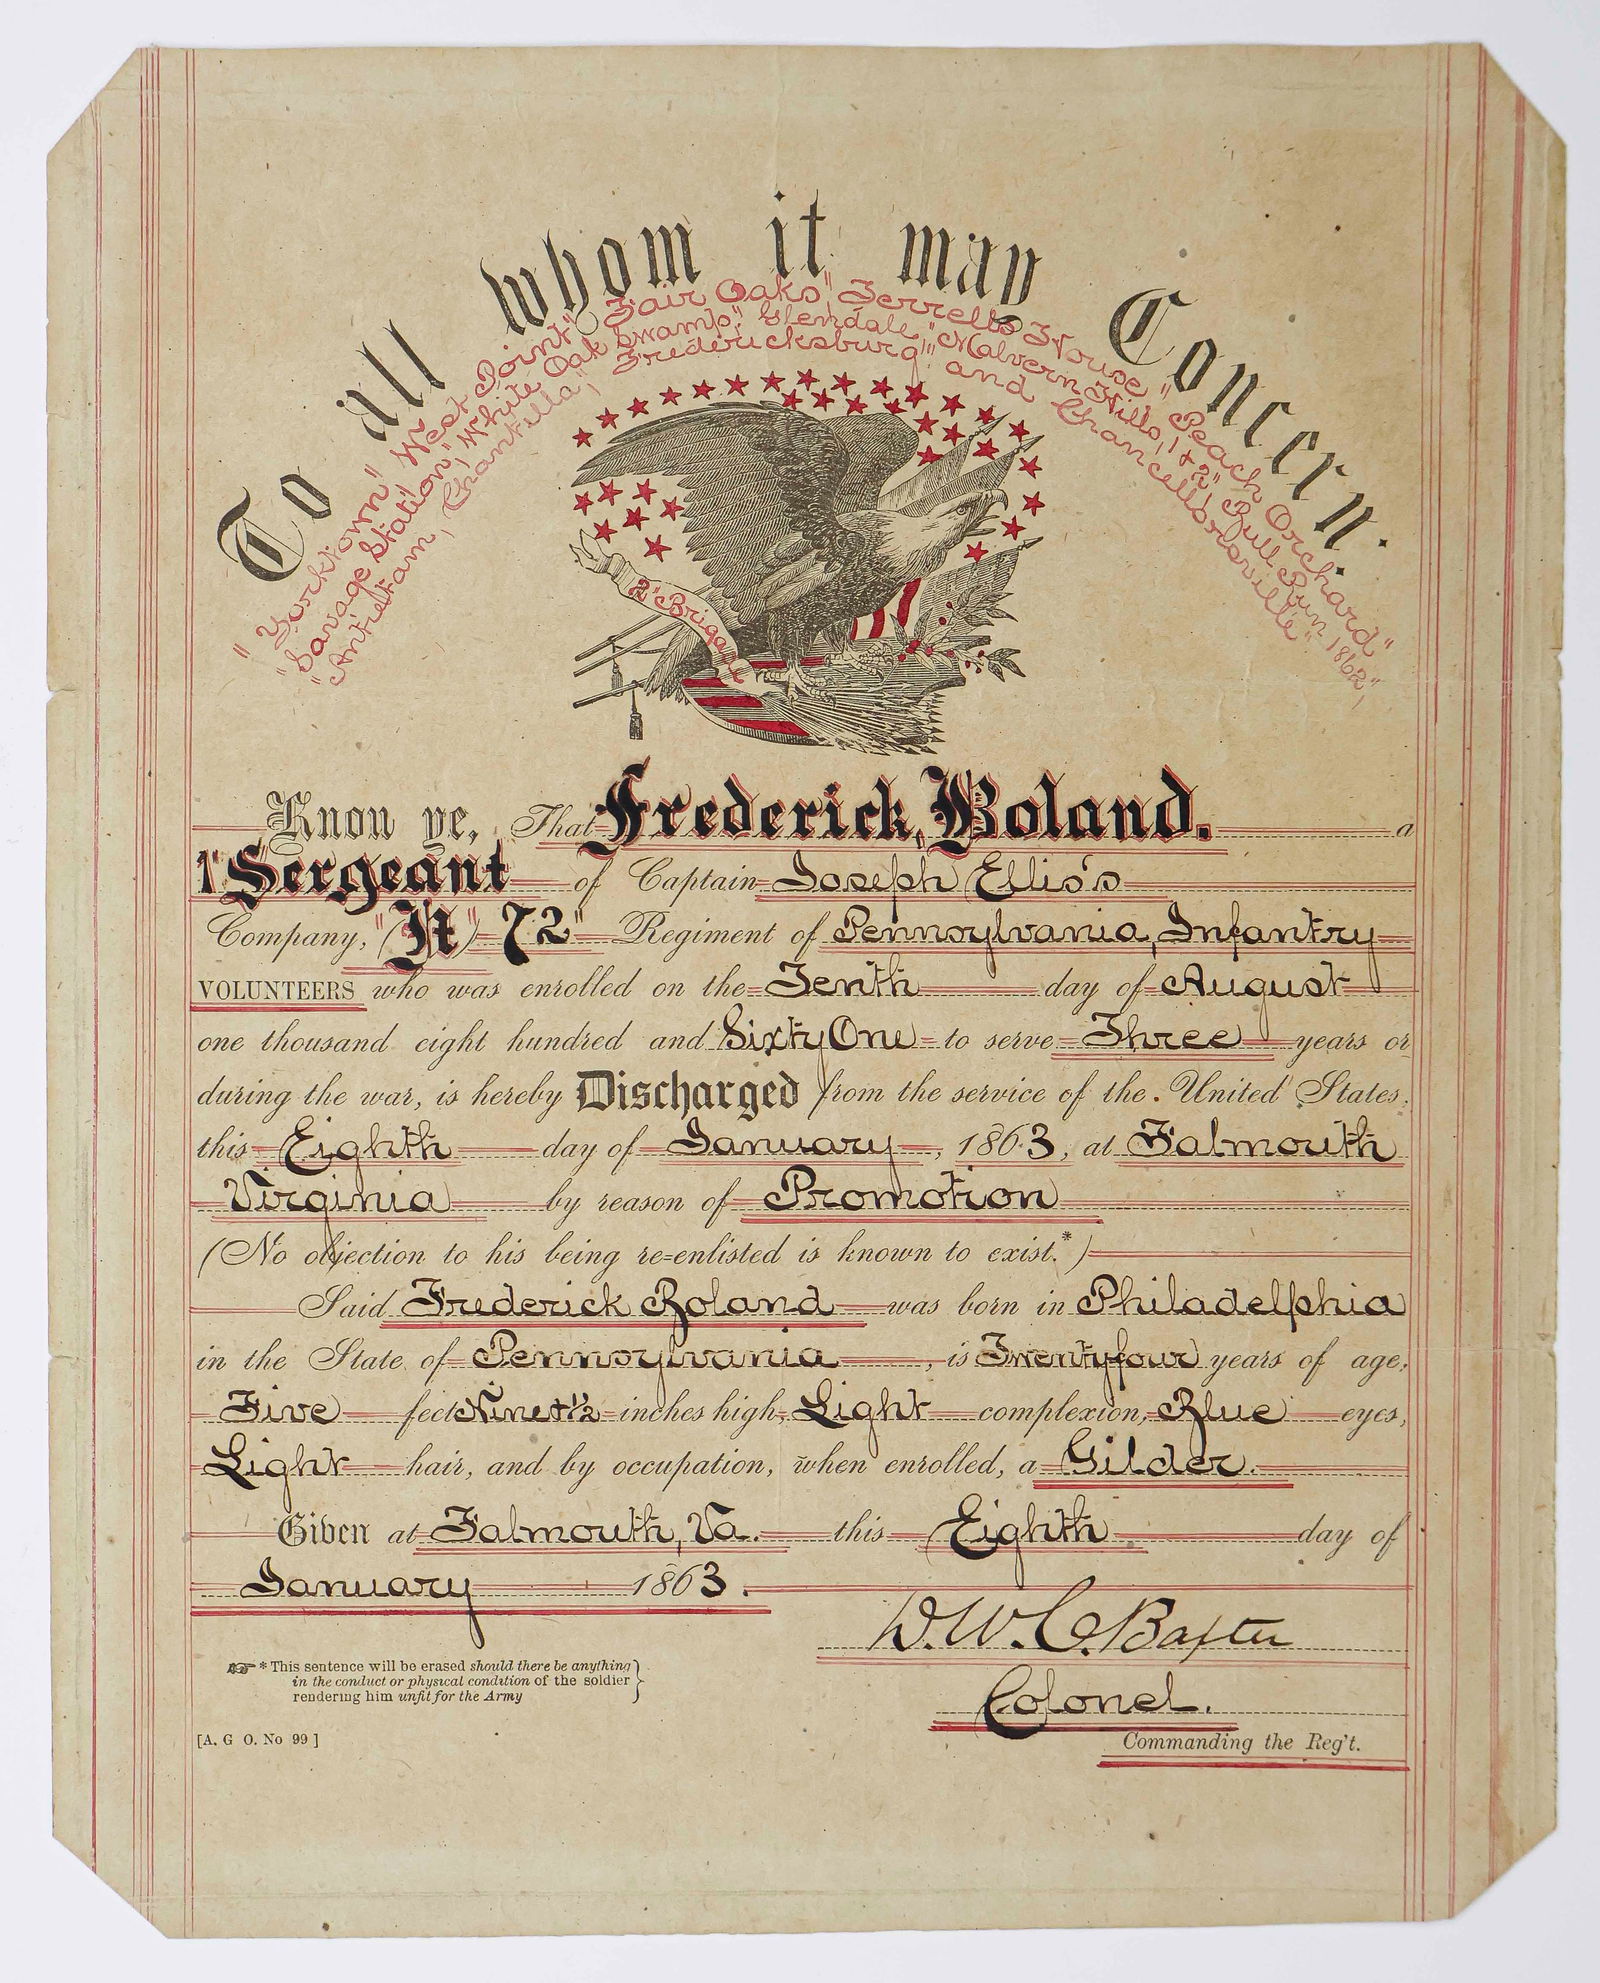 To all whom it may Concern.
"Yorktown" West Point" Fair Oaks" Ferrells House" Peach Orchard"
"Savage Station" White Oak Swamp" Glendale" Malvern Hills, 1 & 2" Bull Run, 1862,"
"Antietam, Chantilla, Fredericksburg" and Chancellorsville"
2" Brigade
Know ye, That Frederick, Boland. a
1" Sergeant of Captain Joseph Ellis's
Company, 72" Regiment of Pennsylvania, Infantry
VOLUNTEERS who was enrolled on the Tenth day of August
one thousand eight hundred and Sixty One to serve Three years or
during the war, is hereby Discharged from the service of the United States,
this Eighth day of January, 1863, at Falmouth
Virginia by reason of Promotion
(No objection to his being re-enlisted is known to exist.*)
Said Frederick Boland was born in Philadelphia
in the State of Pennsylvania, is Twenty four years of age,
Five feet Nine & 1/2 inches high, Light complexion, Blue eyes,
Light hair, and by occupation, when enrolled, a Gilder.
Given at Falmouth, Va. this Eighth day of
January 1863.
D.W.C. Baxter
Colonel.
Commanding the Reg't.
☞ * This sentence will be erased should there be anything
in the conduct or physical condition of the soldier
rendering him unfit for the Army
[A. G O. No 99]